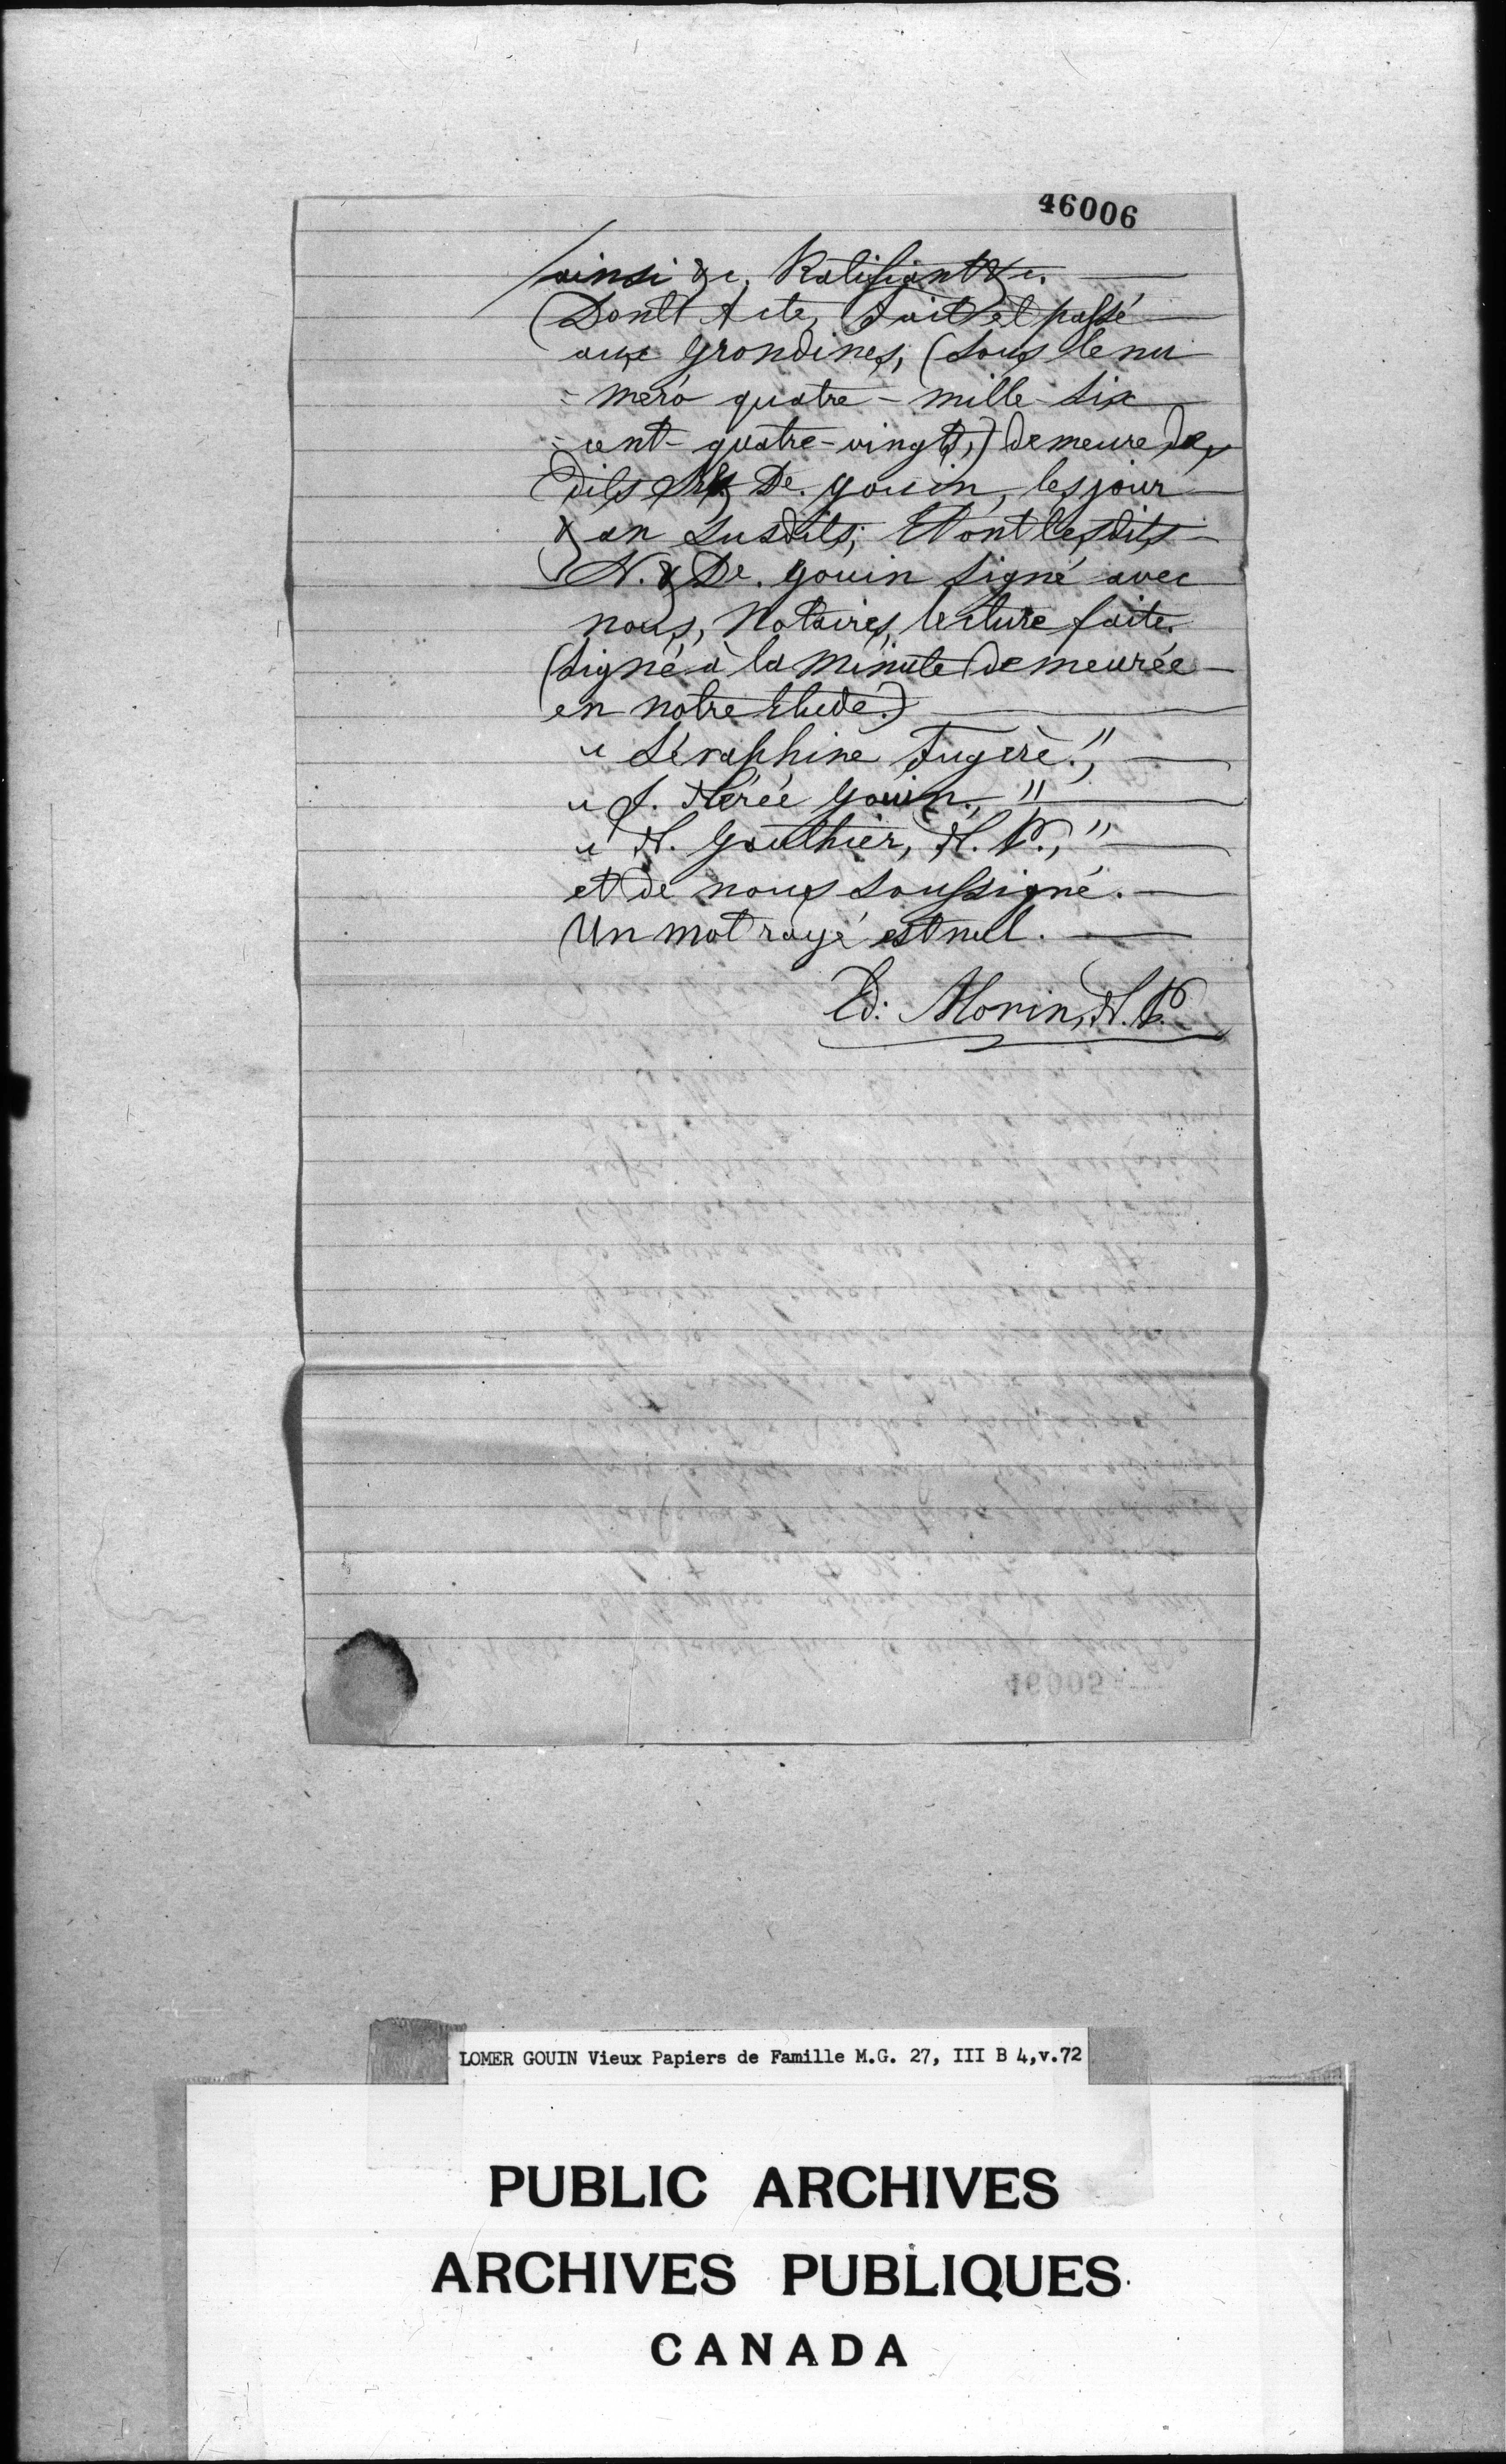 46006
ainsi &c. Ratifiant &c.
Dont Acte, Fait et passé
aux Grondines, (sous le nu
= mero quatre - mille - six
= cent - quatre - vingt,) demeure des
dits & De. Gouin, les jour
& an susdits; Et ont les dits
N. & De. Gouin signé avec
nous, Notaires, lecture faite.
(signé à la minute demeurée
en notre Etude.)
"Séraphine Fugère.",
"J. Nérée Gouin.,"
"N. Gauthier, N. P.,"
et de nous soussigné.
Un mot rayé est nul.
Ed: Morin, N. P.
46005
LOMER GOUIN Vieux Papiers de Famille M.G. 27, III B 4,v.72
PUBLIC ARCHIVES
ARCHIVES PUBLIQUES
CANADA